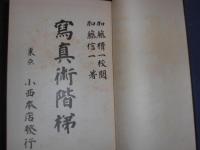 加藤精一校閲
加藤信一著
寫真術階梯
東京 小西本店發行